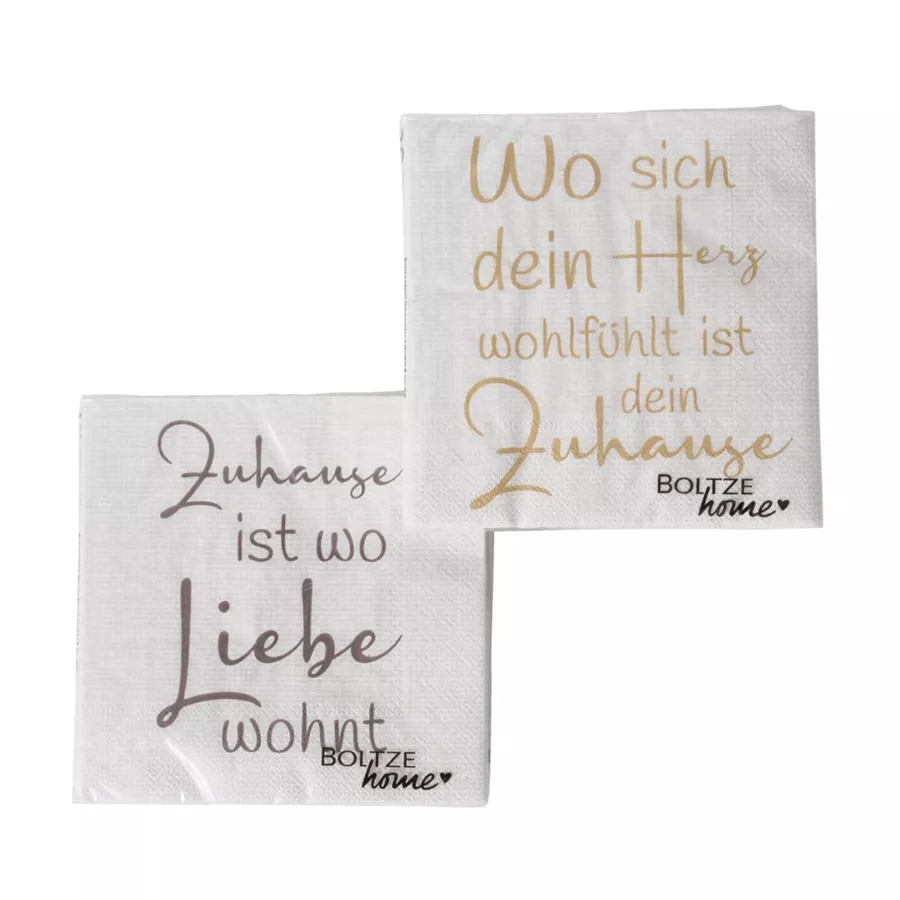 Wo sich
dein Herz
wohlfühlt ist
dein
Zuhause
BOLTZE
home
Zuhause
ist wo
Liebe
wohnt
BOLTZE
home